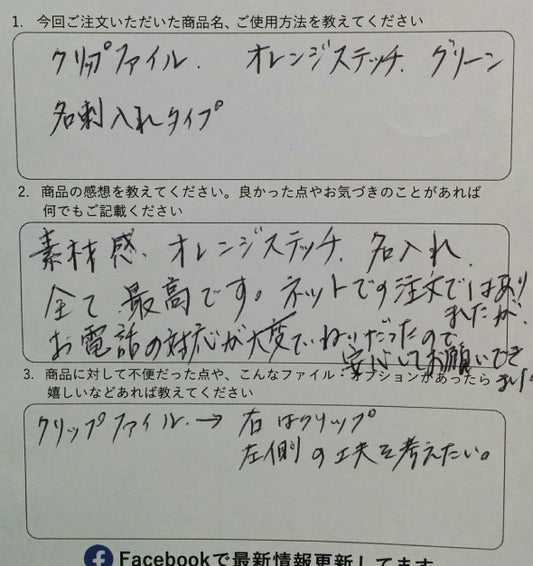 1. 今回ご注文いただいた商品名、ご使用方法を教えてください
クリップファイル. オレンジステッチ. グリーン
名刺入れタイプ
2. 商品の感想を教えてください。良かった点やお気づきのことがあれば
何でもご記載ください
素材感、オレンジステッチ、名入れ、
全て最高です。ネットでの注文ではあり
ましたが、
お電話の対応が大変ていねいだったので
安心してお願いでき
ました
3. 商品に対して不便だった点や、こんなファイル・オプションがあったら
嬉しいなどあれば教えてください
クリップファイル. → 右はクリップ
左側の工夫を考えたい。
Facebookで最新情報更新してます